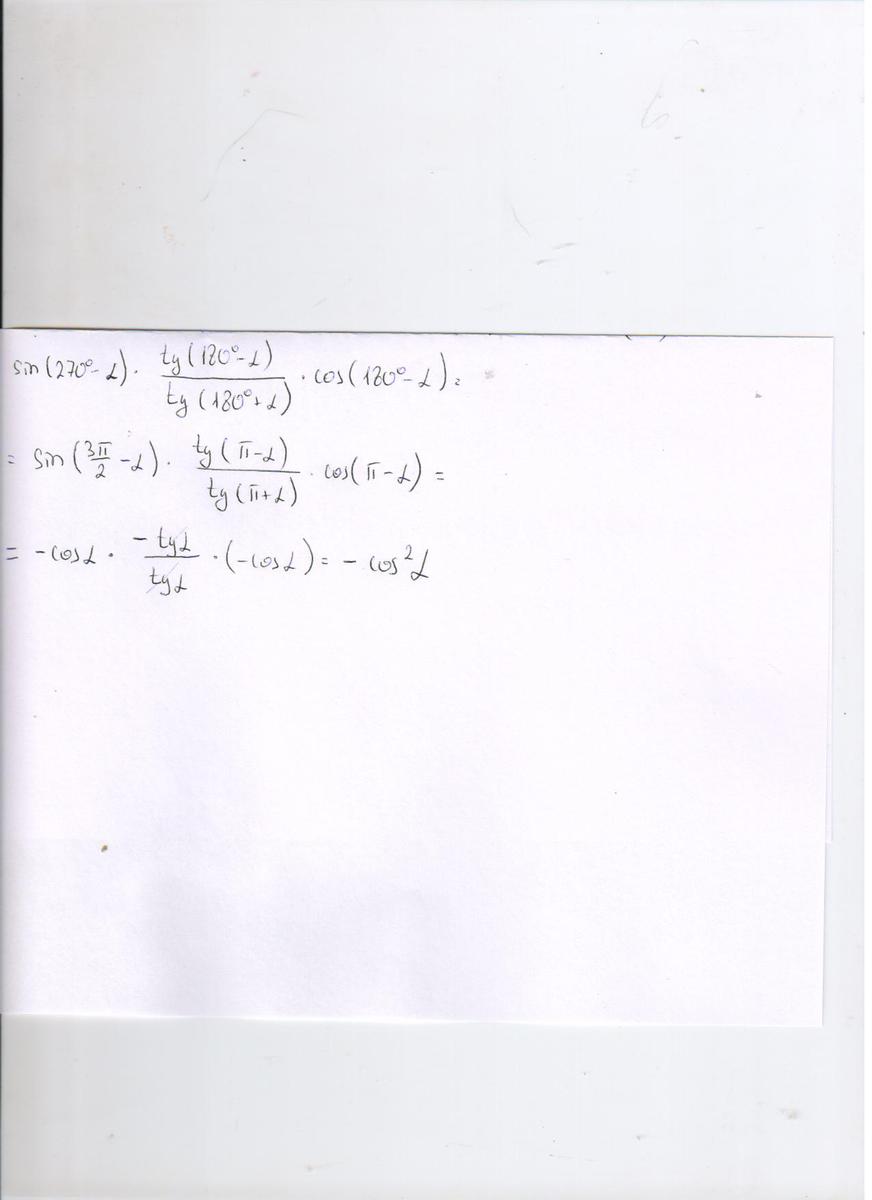 sin(270°-α)· tg(180°-α)/tg(180°+α) ·cos(180°-α)=
= sin(3π/2 -α)· tg(π-α)/tg(π+α) ·cos(π-α)=
= -cosα · -tgα/tgα ·(-cosα)= - cos²α